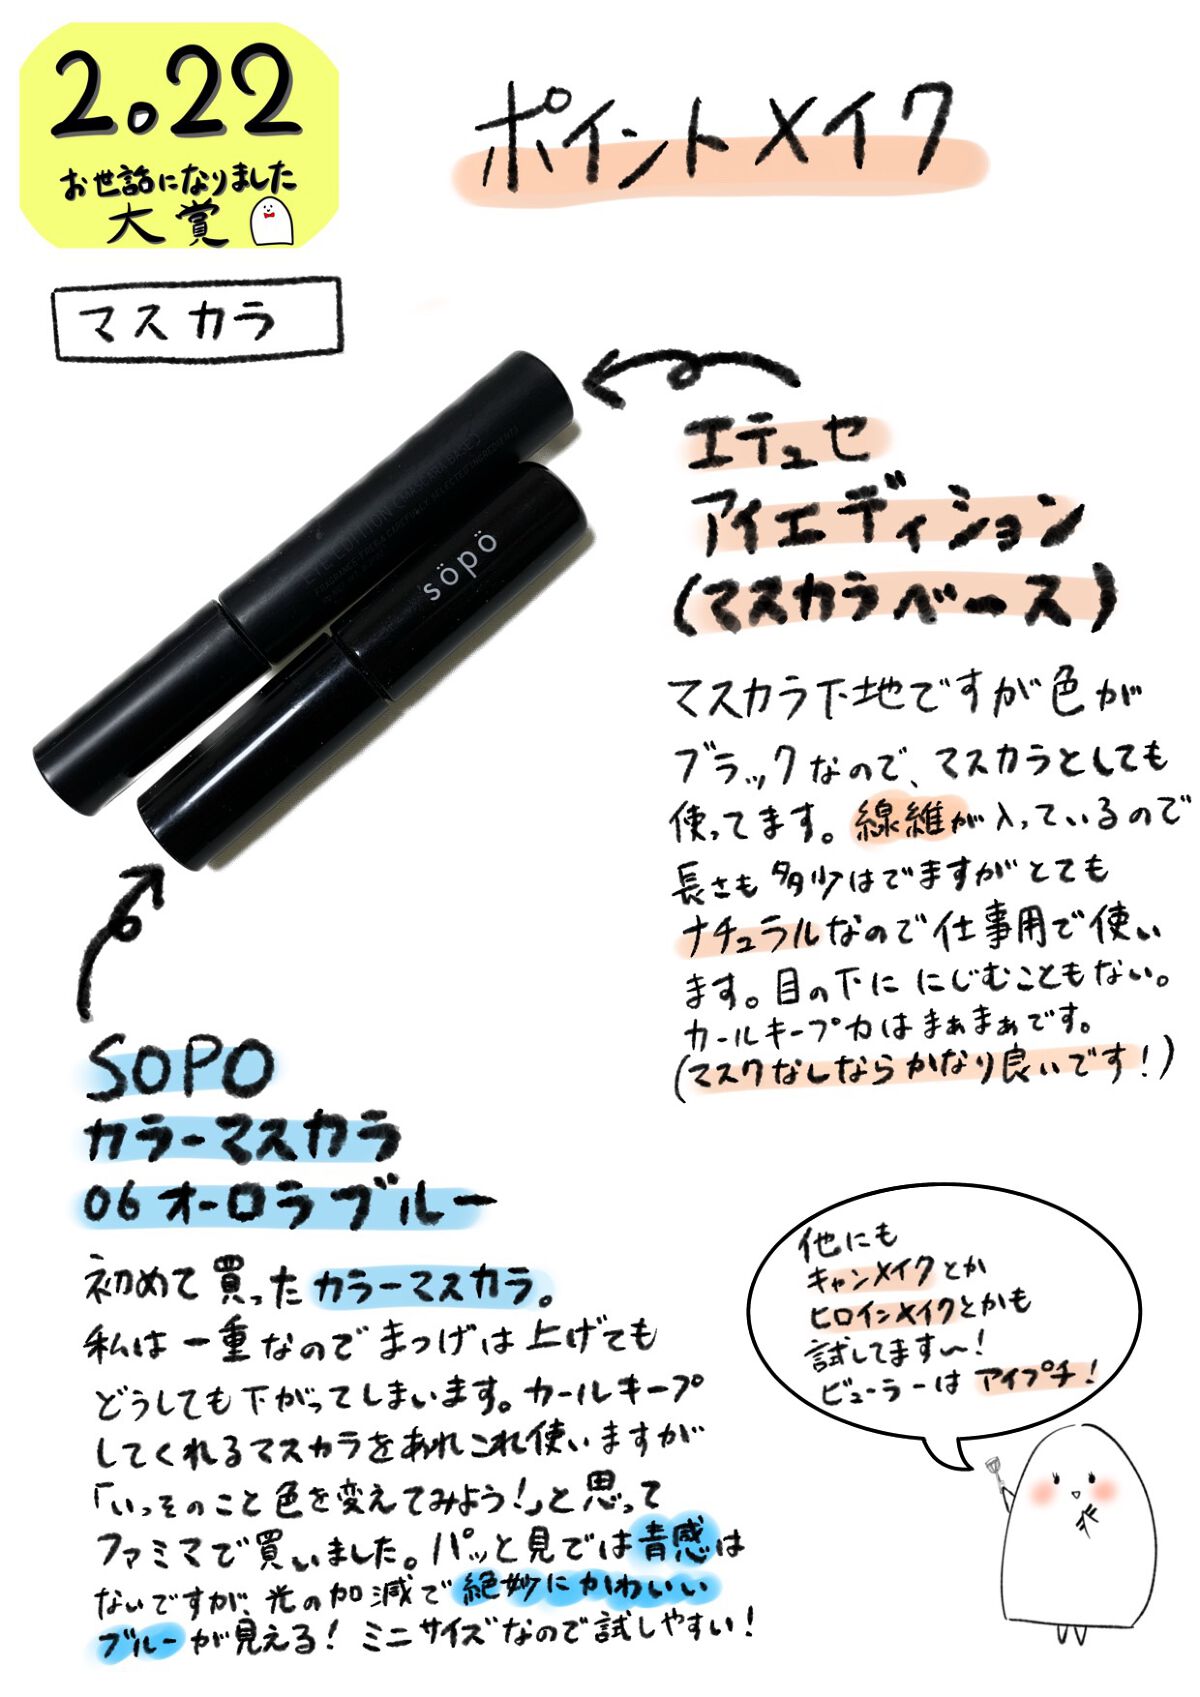 2022
お世話になりました
大賞
ポイントメイク
マスカラ
エテュセ
アイエディション
(マスカラベース)
EYE EDITION (MASCARA BASE)
söpö
マスカラ下地ですが色が
ブラックなので、マスカラとしても
使ってます。線維が入っているので
長さも多少はでますがとても
ナチュラルなので仕事用で使い
ます。目の下ににじむこともない。
カールキープ力はまぁまぁです。
(マスクなしならかなり良いです！)
SOPO
カラーマスカラ
06 オーロラブルー
初めて買ったカラーマスカラ。
私は一重なのでまつげは上げても
どうしても下がってしまいます。カールキープ
してくれるマスカラをあれこれ使いますが
「いっそのこと色を変えてみよう！」と思って
ファミマで買いました。パッと見では青感は
ないですが、光の加減で絶妙にかわいい
ブルーが見える！ミニサイズなので試しやすい！
他にも
キャンメイクとか
ヒロインメイクとかも
試してます〜！
ビューラーはアイプチ！